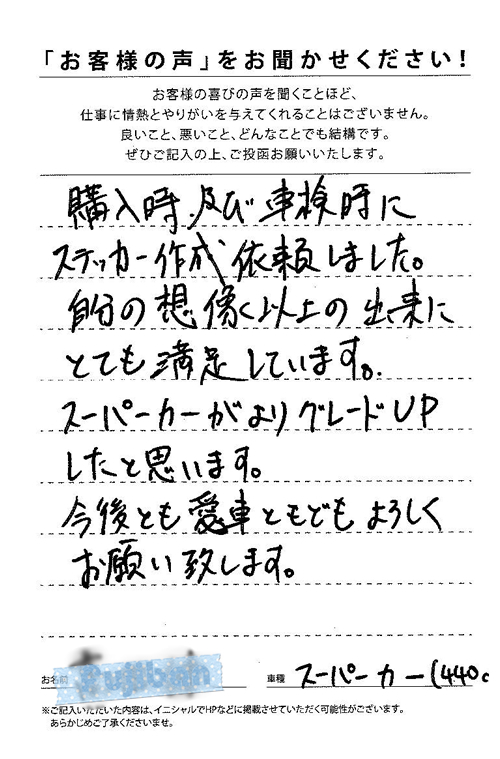 「お客様の声」をお聞かせください！
お客様の喜びの声を聞くことほど、
仕事に情熱とやりがいを与えてくれることはございません。
良いこと、悪いこと、どんなことでも結構です。
ぜひご記入の上、ご投函お願いいたします。
購入時、及び車検時に
ステッカー作成依頼しました。
自分の想像く以上の出来に
とても満足しています。
スーパーカーがよりグレードUP
したと思います。
今後とも愛車ともどもよろしく
お願い致します。
お名前 Fujibuin 車種 スーパーカー(440c
※ご記入いただいた内容は、イニシャルでHPなどに掲載させていただく可能性がございます。
あらかじめご了承くださいませ。